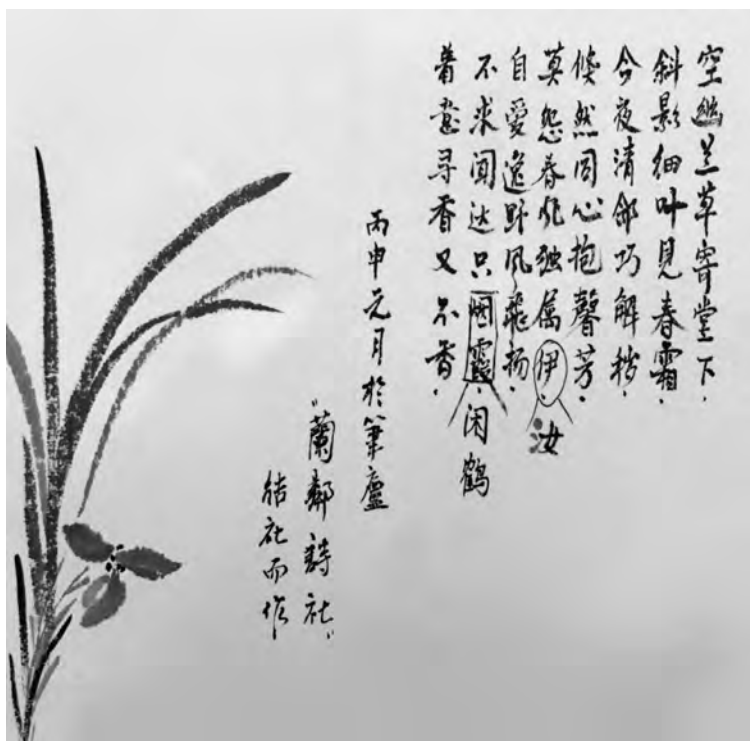 空幽兰草寄堂下.
斜影细叶見春霜.
今夜清巧解.
倏然同心抱馨芳.
莫怨春光独属伊.汝
自愛逸野风飛扬.
不求闻达只烟霞.闲鹤
着意寻香又不香.
丙申元月於筆廬
"蘭鄰詩社"
结社而作